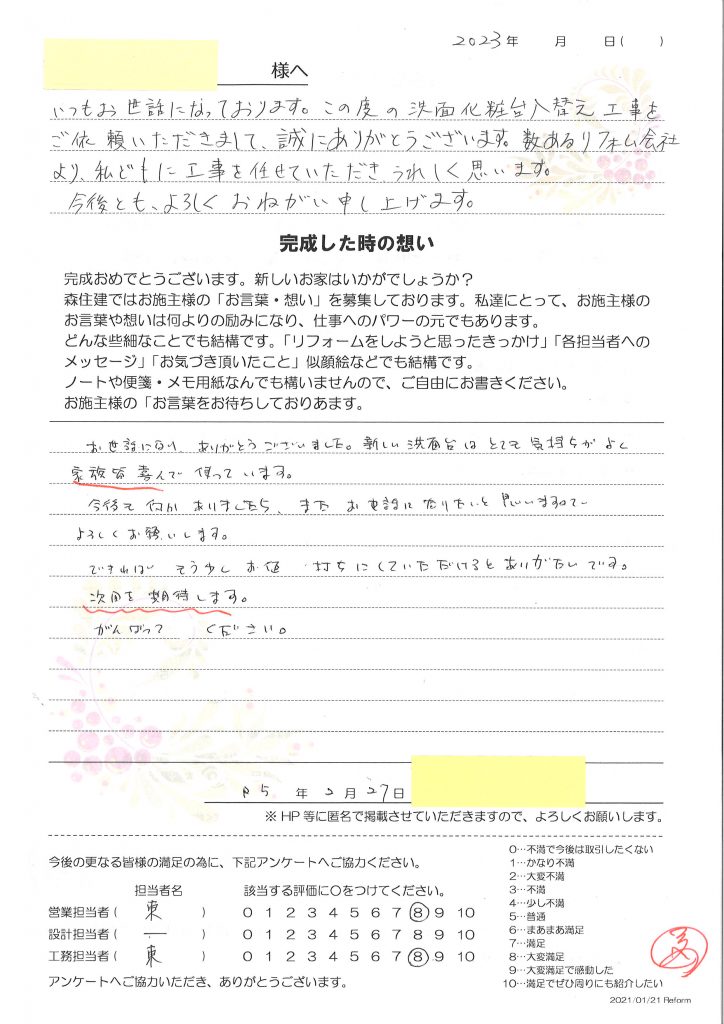 2023年　月　日(　)
様へ
いつもお世話になっております。この度の洗面化粧台入替え工事を
ご依頼いただきまして、誠にありがとうございます。数あるリフォム会社
より、私どもに工事を任せていただきうれしく思います。
今後とも、よろしくおねがい申し上げます。
完成した時の想い
完成おめでとうございます。新しいお家はいかがでしょうか？
森住建ではお施主様の「お言葉・想い」を募集しております。私達にとって、お施主様の
お言葉や想いは何よりの励みになり、仕事へのパワーの元でもあります。
どんな些細なことでも結構です。「リフォームをしようと思ったきっかけ」「各担当者への
メッセージ」「お気づき頂いたこと」似顔絵などでも結構です。
ノートや便箋・メモ用紙なんでも構いませんので、ご自由にお書きください。
お施主様の「お言葉をお待ちしておりあます。
お世話になり、ありがとうございました。新しい洗面台はとても気持ちがよく
家族皆喜んで使っています。
今後も何かありましたら、またお世話になりたいと思いますので
よろしくお願いします。
できれば もう少しお値 打ちにしていただけるとありがたいです。
次回を期待します。
がんばって ください。
R5年2月27日
※HP等に匿名で掲載させていただきますので、よろしくお願いします。
今後の更なる皆様の満足の為に、下記アンケートへご協力ください。
担当者名　該当する評価に○をつけてください。
営業担当者(　東　)　0 1 2 3 4 5 6 7 8 9 10
設計担当者(　ー　)　0 1 2 3 4 5 6 7 8 9 10
工務担当者(　東　)　0 1 2 3 4 5 6 7 8 9 10
アンケートへご協力いただき、ありがとうございます。
0…不満で今後は取引したくない
1…かなり不満
2…大変不満
3…不満
4…少し不満
5…普通
6…まあまあ満足
7…満足
8…大変満足
9…大変満足で感動した
10…満足でぜひ周りにも紹介したい
2021/01/21 Reform